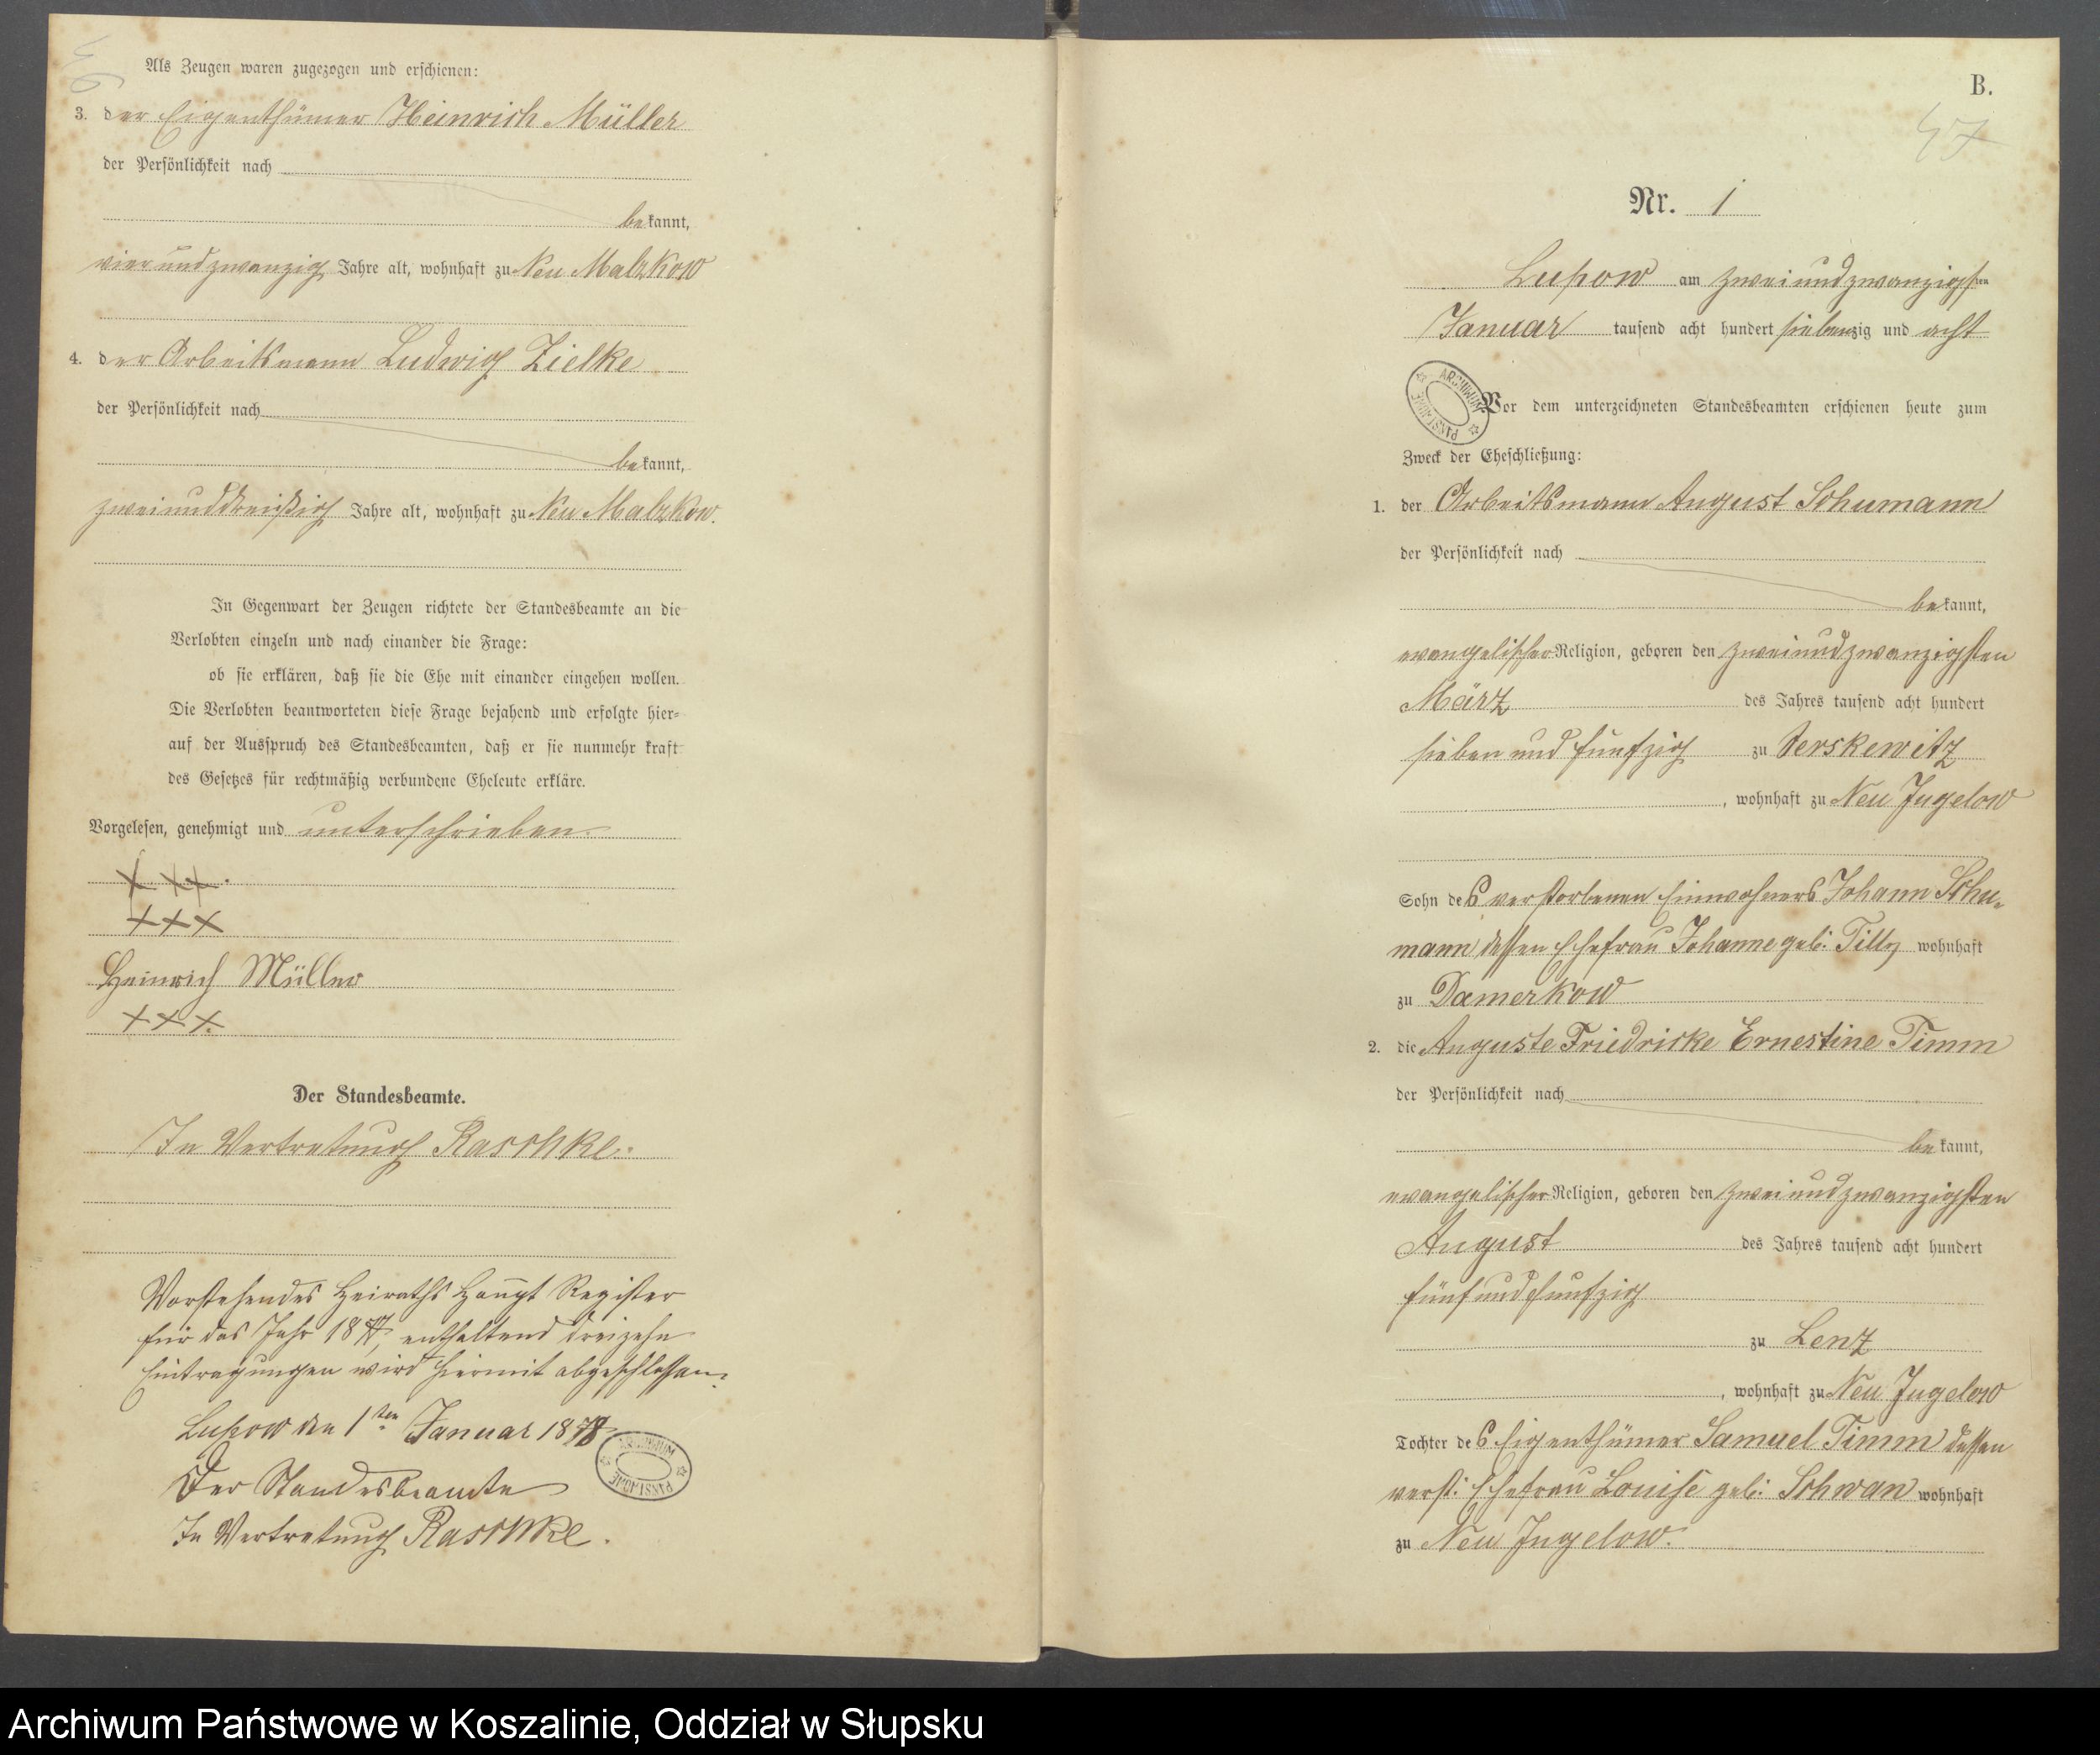 Als Zeugen waren zugezogen und erschienen:
3. der Eigenthümer Heinrich Müller
der Persönlichkeit nach
bekannt,
vierundzwanzig Jahre alt, wohnhaft zu Neu Malzkow
4. der Arbeitsmann Ludwig Zielke
der Persönlichkeit nach
bekannt,
zweiunddreißig Jahre alt, wohnhaft zu Neu Malzkow.
In Gegenwart der Zeugen richtete der Standesbeamte an die
Verlobten einzeln und nach einander die Frage:
ob sie erklären, daß sie die Ehe mit einander eingehen wollen.
Die Verlobten beantworteten diese Frage bejahend und erfolgte hier-
auf der Ausspruch des Standesbeamten, daß er sie nunmehr kraft
des Gesetzes für rechtmäßig verbundene Eheleute erkläre.
Vorgelesen, genehmigt und unterschrieben
XXX.
XXX
Heinrich Müller
XXX.
Der Standesbeamte.
In Vertretung Raschke.
Vorstehendes Heiraths Haupt Register
für das Jahr 1877, enthaltend dreizehn
Eintragungen wird hiermit abgeschlossen.
Lupow den 1ten Januar 1878
Der Standesbeamte
In Vertretung Raschke.
B.
47
Nr. 1
Lupow am zweiundzwanzigsten
Januar tausend acht hundert siebenzig und acht
Vor dem unterzeichneten Standesbeamten erschienen heute zum
Zweck der Eheschließung:
1. der Arbeitsmann August Schumann
der Persönlichkeit nach
bekannt,
evangelischer Religion, geboren den zweiundzwanzigsten
März des Jahres tausend acht hundert
sieben und funfzig zu Serskewitz
, wohnhaft zu Neu Jugelow
Sohn des verstorbenen Einwohners Johann Schu-
mann dessen Ehefrau Johanne geb: Tilly wohnhaft
zu Damerkow
2. die Auguste Friedricke Ernestine Timm
der Persönlichkeit nach
bekannt,
evangelischer Religion, geboren den zweiundzwanzigsten
August des Jahres tausend acht hundert
fünf und funfzig
zu Lenz
, wohnhaft zu Neu Jugelow
Tochter des Eigenthümer Samuel Timm dessen
verst: Ehefrau Louise geb: Schwan wohnhaft
zu Neu Jugelow.
Archiwum Państwowe w Koszalinie, Oddział w Słupsku